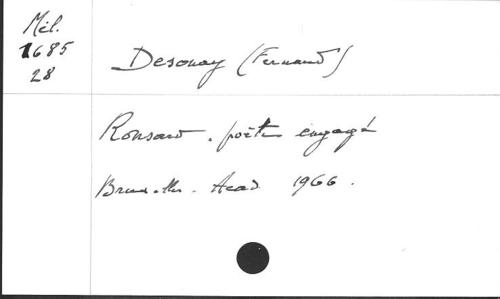 Mél.
1685
28
Desonay (Fernand)
Ronsard. poète engagé
Bruxelles. Acad 1966.